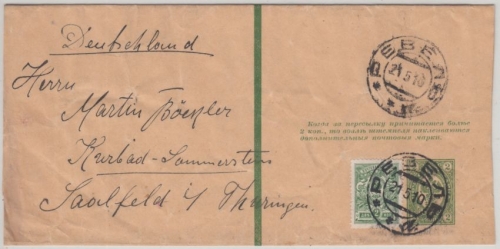 Deutschland
Herrn
Martin
Kurbad-Sommerstein
Saalfeld i/ Thüringen.
РЕВЕЛЬ
21 5 10
Когда за пересылку причитается более
2 коп., то возлѣ штемпеля наклеиваются
дополнительныя почтовыя марки.
РЕВЕЛЬ
21 5 10